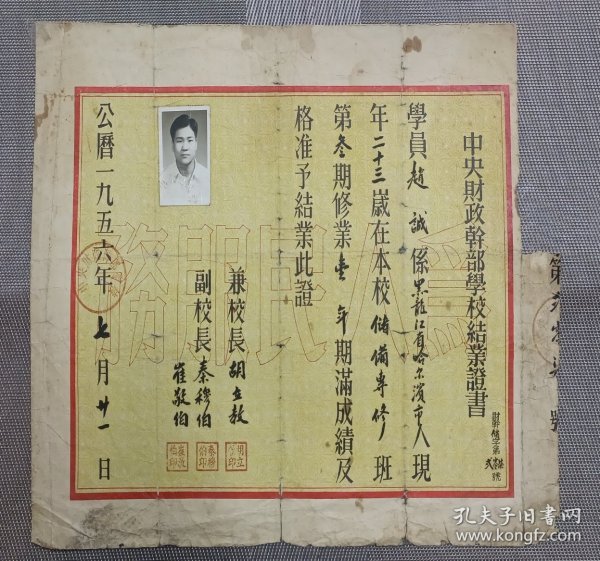 中央財政幹部學校結業證書
學員趙誠係黑龍江省哈尔濱市人現
年二十三歲在本校儲備專修班
第叁期修業壹年期滿成績及
格准予結業此證
兼校長胡立教
副校長秦穆伯
崔敬伯
公曆一九五六年七月廿一日
為人民服務
孔夫子旧书网
www.kongfz.com